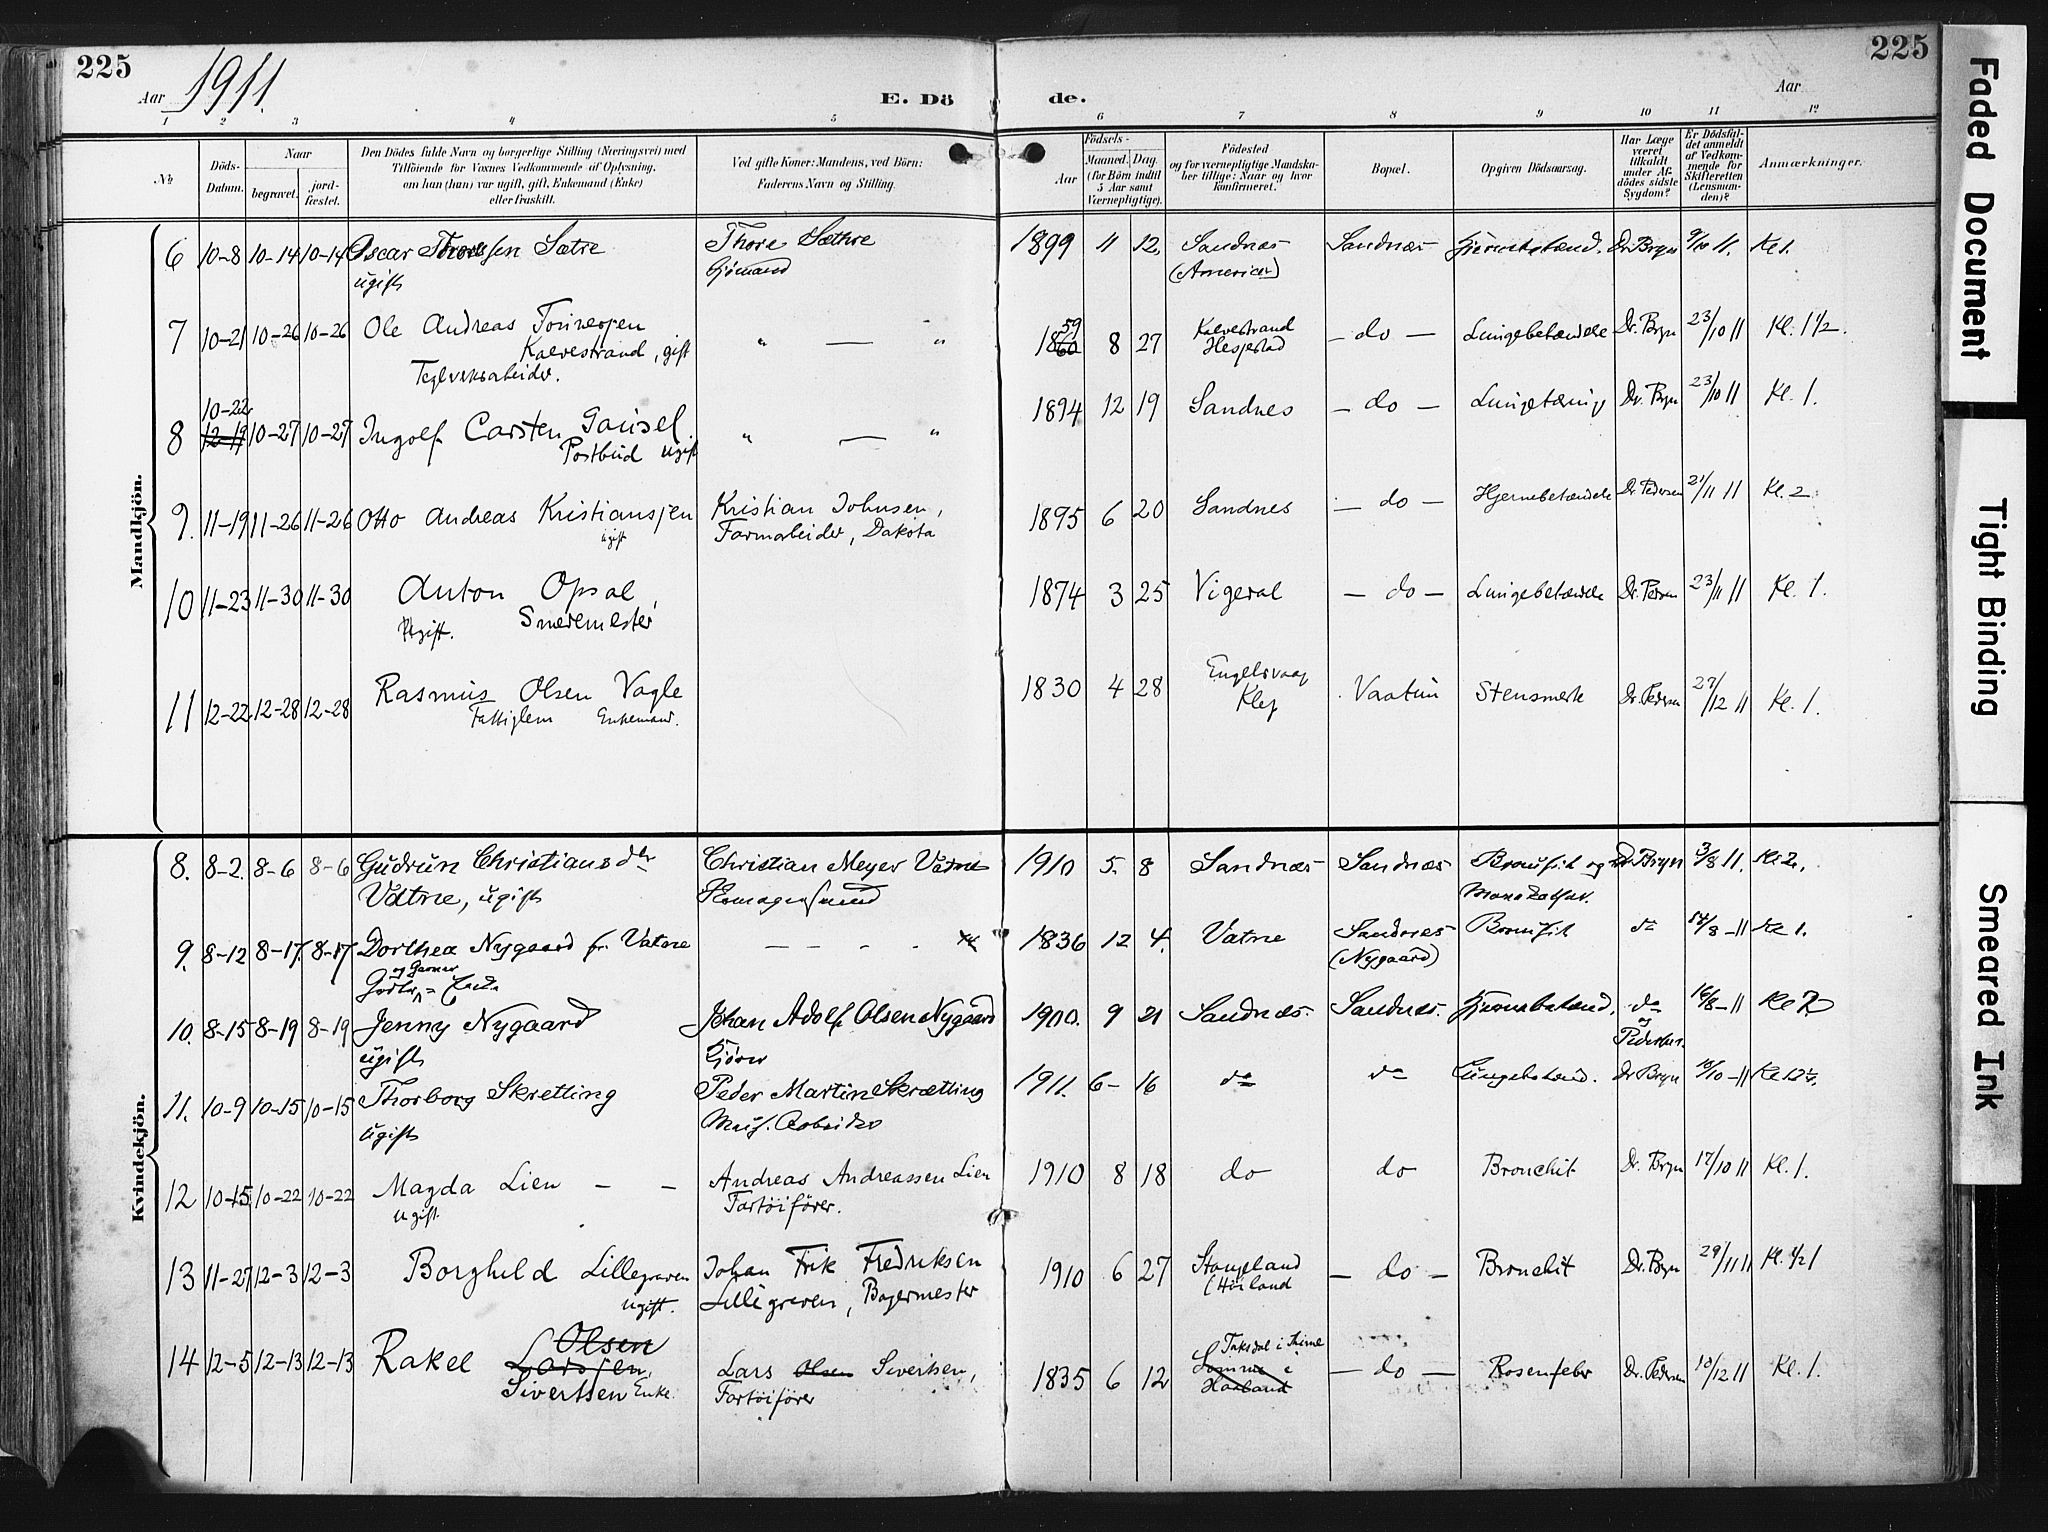 225
Aar 1911.
E. Dö
de.
Aar
225
1 2 3 4 5 6 7 8 9 10 11 12
№
Döds-Datum.
Naar
begravet.
jordfæstet.
Den Dödes fulde Navn og borgerlige Stilling (Næringsvei) med
Tilföiende for Voxnes Vedkommende af Oplysning,
om han (hun) var ugift, gift, Enkemand (Enke)
eller fraskilt.
Ved gifte Koner: Mandens, ved Börn:
Faderens Navn og Stilling.
Födsels-
Aar
Maaned. Dag.
(for Börn indtil
5 Aar samt
Værnepligtige).
Födested
og for værnepligtige Mandskaber
tillige: Naar og hvor
konfirmeret.
Bopæl.
Opgiven Dödsaarsag.
Har Læge
været
tilkaldt
under Afdödes
sidste
Sygdom?
Er Dödsfaldet
anmeldt
af Vedkommende
for
Skifteretten
(Lensmanden)?
Anmærkninger.
Mandkjön.
6 10-8 10-14 10-14 Oscar Thoresen Sætre Thore Sæthre 1899 11 12. Sandnæs Sandnæs Hjernebetænd. Dr. Bryn 9/10 11. Kl 1.
ugift (America)
7 10-21 10-26 10-26 Ole Andreas " — " 1860 59 8 27 Kalvestrand — do — Lungebetændelse Dr. Bryn 23/10 11 Kl. 1 1/2.
Kalvestrand, gift Hesjestad
Teglverksarbeider.
10-22
8 12-19 10-27 10-27 Ingolf Carsten Gausel " — " 1894 12 19 Sandnes — do — Lungetæring Dr. Bryn 23/10 11 Kl. 1.
Postbud ugift
9. 11-19 11-26 11-26 Otto Andreas Kristiansen Kristian Johnsen, 1895 6 20 Sandnes — do — Hjernebetændelse Dr. Pedersen 21/11 11 Kl. 2
ugift Farmarbeider, Dakota
10 11-23 11-30 11-30 Anton Opsal 1874 3 25 Vigeral — do — Lungebetændelse Dr. Pedersen 23/11 11 Kl. 1.
Ugift. Smedemester
11 12-22 12-28 12-28 Rasmus Olsen Vagle 1830 4 28 Engelsvaag Vaatun Stensmerte Dr. Pedersen 27/12 11 Kl. 1.
Fattiglem Enkemand. Klep
Kvindekjön.
8. 8-2. 8-6 8-6 Gudrun Christiansdtr Christian Meyer Vatne 1910 5. 8 Sandnæs Sandnæs Bronchit og Dr. Bryn 3/8 11. Kl 2.
Vatne, ugift
9. 8-12 8-17. 8-17 Dorthea Nygaard fr. Vatne — — - - 1836 12 4. Vatne Sandnæs Bronchit do 14/8-11 Kl 1.
(Nygaard)
10. 8-15 8-19 8-19 Jenny Nygaard Johan Adolf Olsen Nygaard 1900. 9 21 Sandnæs. Sandnæs. Hjernebetænd. do 16/8-11 Kl 2
ugift og Pedersen.
11. 10-9 10-15 10-15 Thorborg Skretting Peder Martin Skrætting 1911. 6- 16 do do Lungebetænd. Dr Bryn 10/10-11 Kl 1 1/2.
ugift
12 10-15 10-22 10-22 Magda Lien — — Andreas Andreassen Lien 1910 8 18 do do Bronchit Dr. Bryn 17/10 11 Kl. 1.
ugift. Fartöifører.
13 11-27 12-3 12-3 Borghild Lillegraven Johan Frik Fredriksen 1910 6 27 Stangeland — do — Bronchit Dr. Bryn 29/11 11 Kl. 1/2 1
ugift. Lillegraven, Bagermester (Høiland
14 12-5 12-13 12-13 Rakel Olsen Larssen, Lars Olsen Sivertsen, 1835 6 12 Taksdal i Thime — do — Rosenfeber Dr. Pedersen 10/12 11 Kl. 1.
Sivertsen Enke. Fartöifører
Faded Document
Tight Binding
Smeared Ink